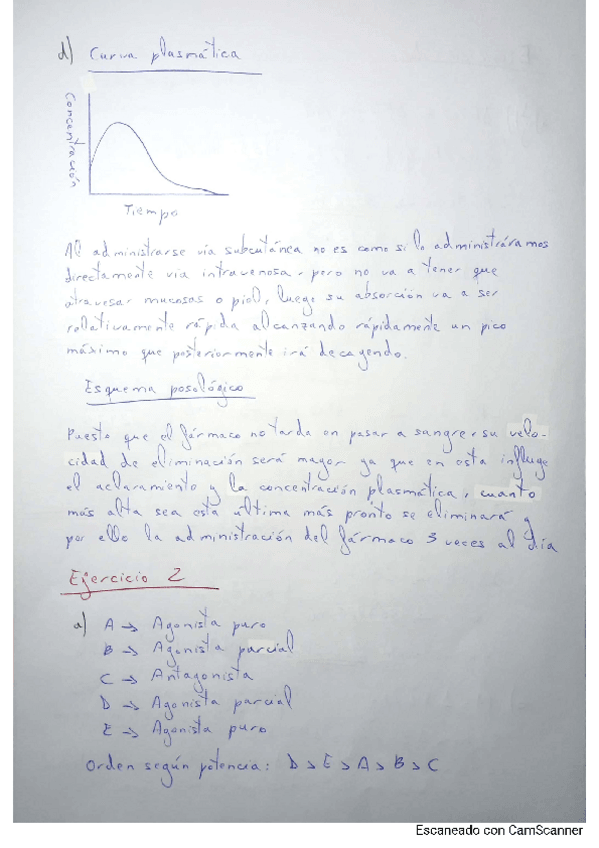 d) Curva plasmática
Concentración
Tiempo
Al administrarse via subcutánea no es como si lo administráramos
directamente via intravenosa, pero no va a tener que
atravesar mucosas o piel, luego su absorción va a ser
relativamente rápida alcanzando rápidamente un pico
máximo que posteriormente irá decayendo.
Esquema posológico
Puesto que el fármaco no tarda en pasar a sangre, su velo-
cidad de eliminación será mayor ya que en esta influye
el aclaramiento y la concentración plasmática, cuanto
más alta sea esta última más pronto se eliminará y
por ello la administración del fármaco 3 veces al día
Ejercicio 2
a) A → Agonista puro
B → Agonista parcial
C → Antagonista
D → Agonista parcial
E → Agonista puro
Orden según potencia: D > E > A > B > C
Escaneado con CamScanner